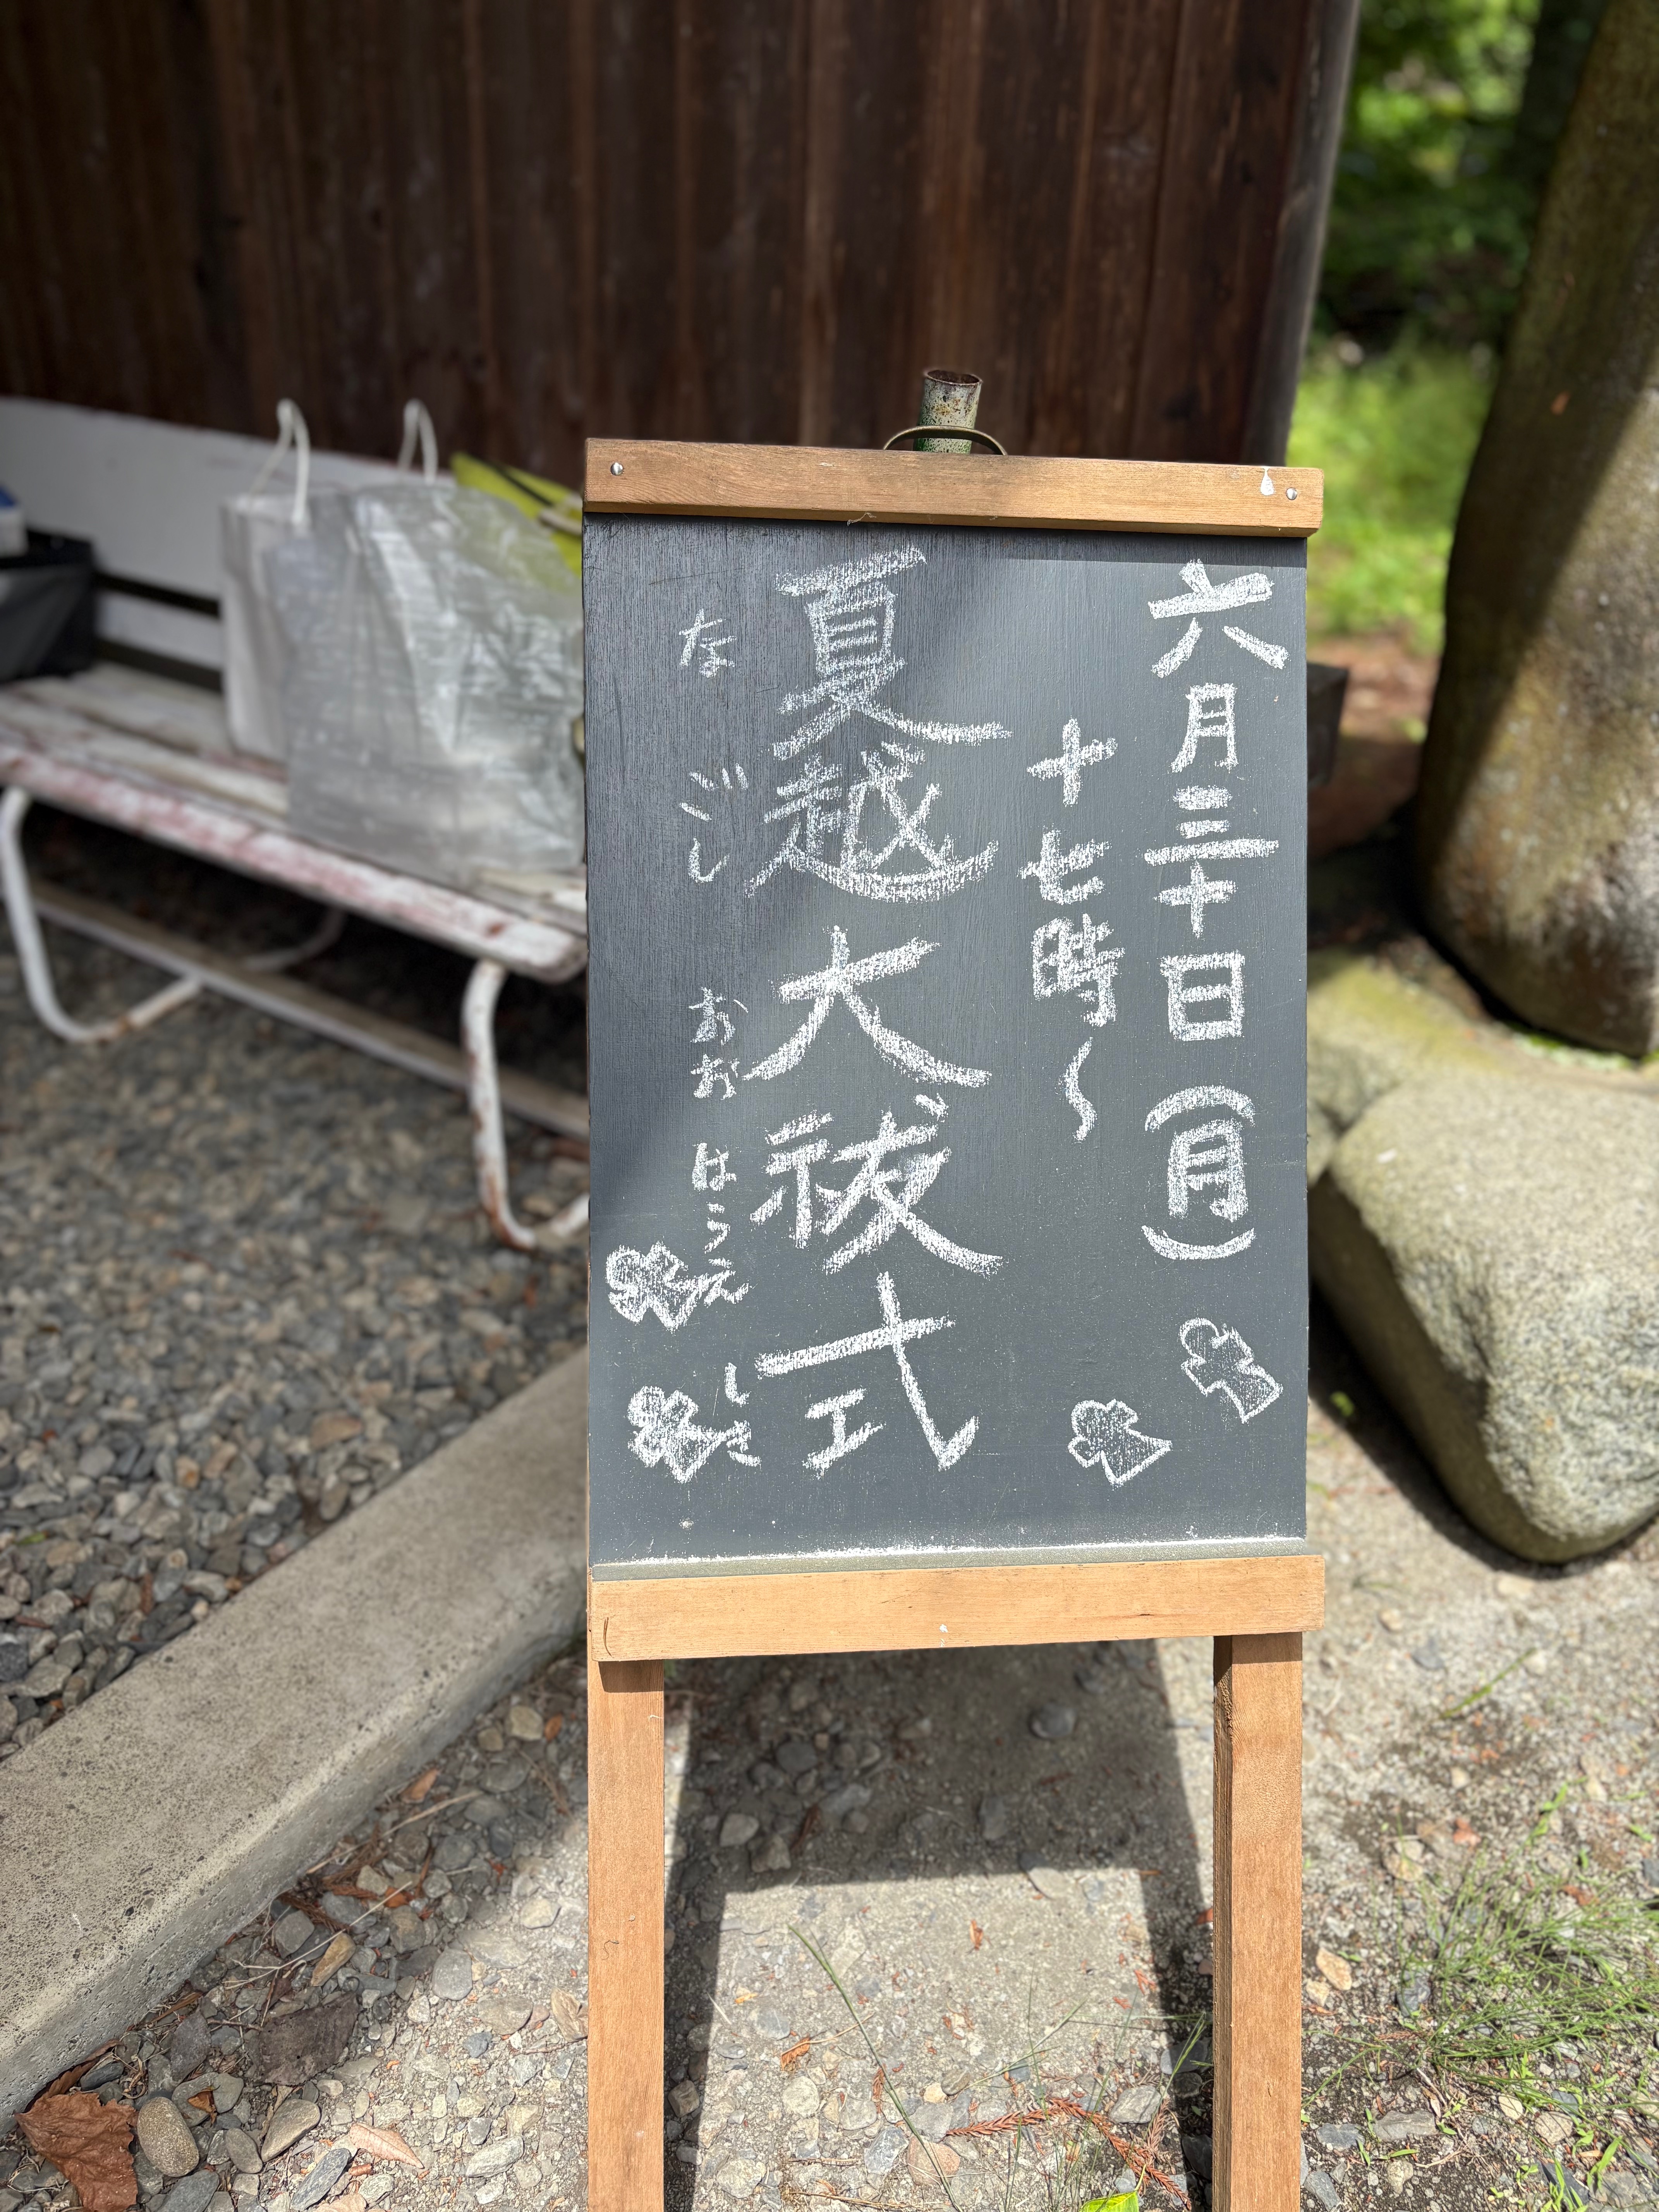 六月三十日(月)
十七時〜
夏越大祓式
なごし おおはらえ しき